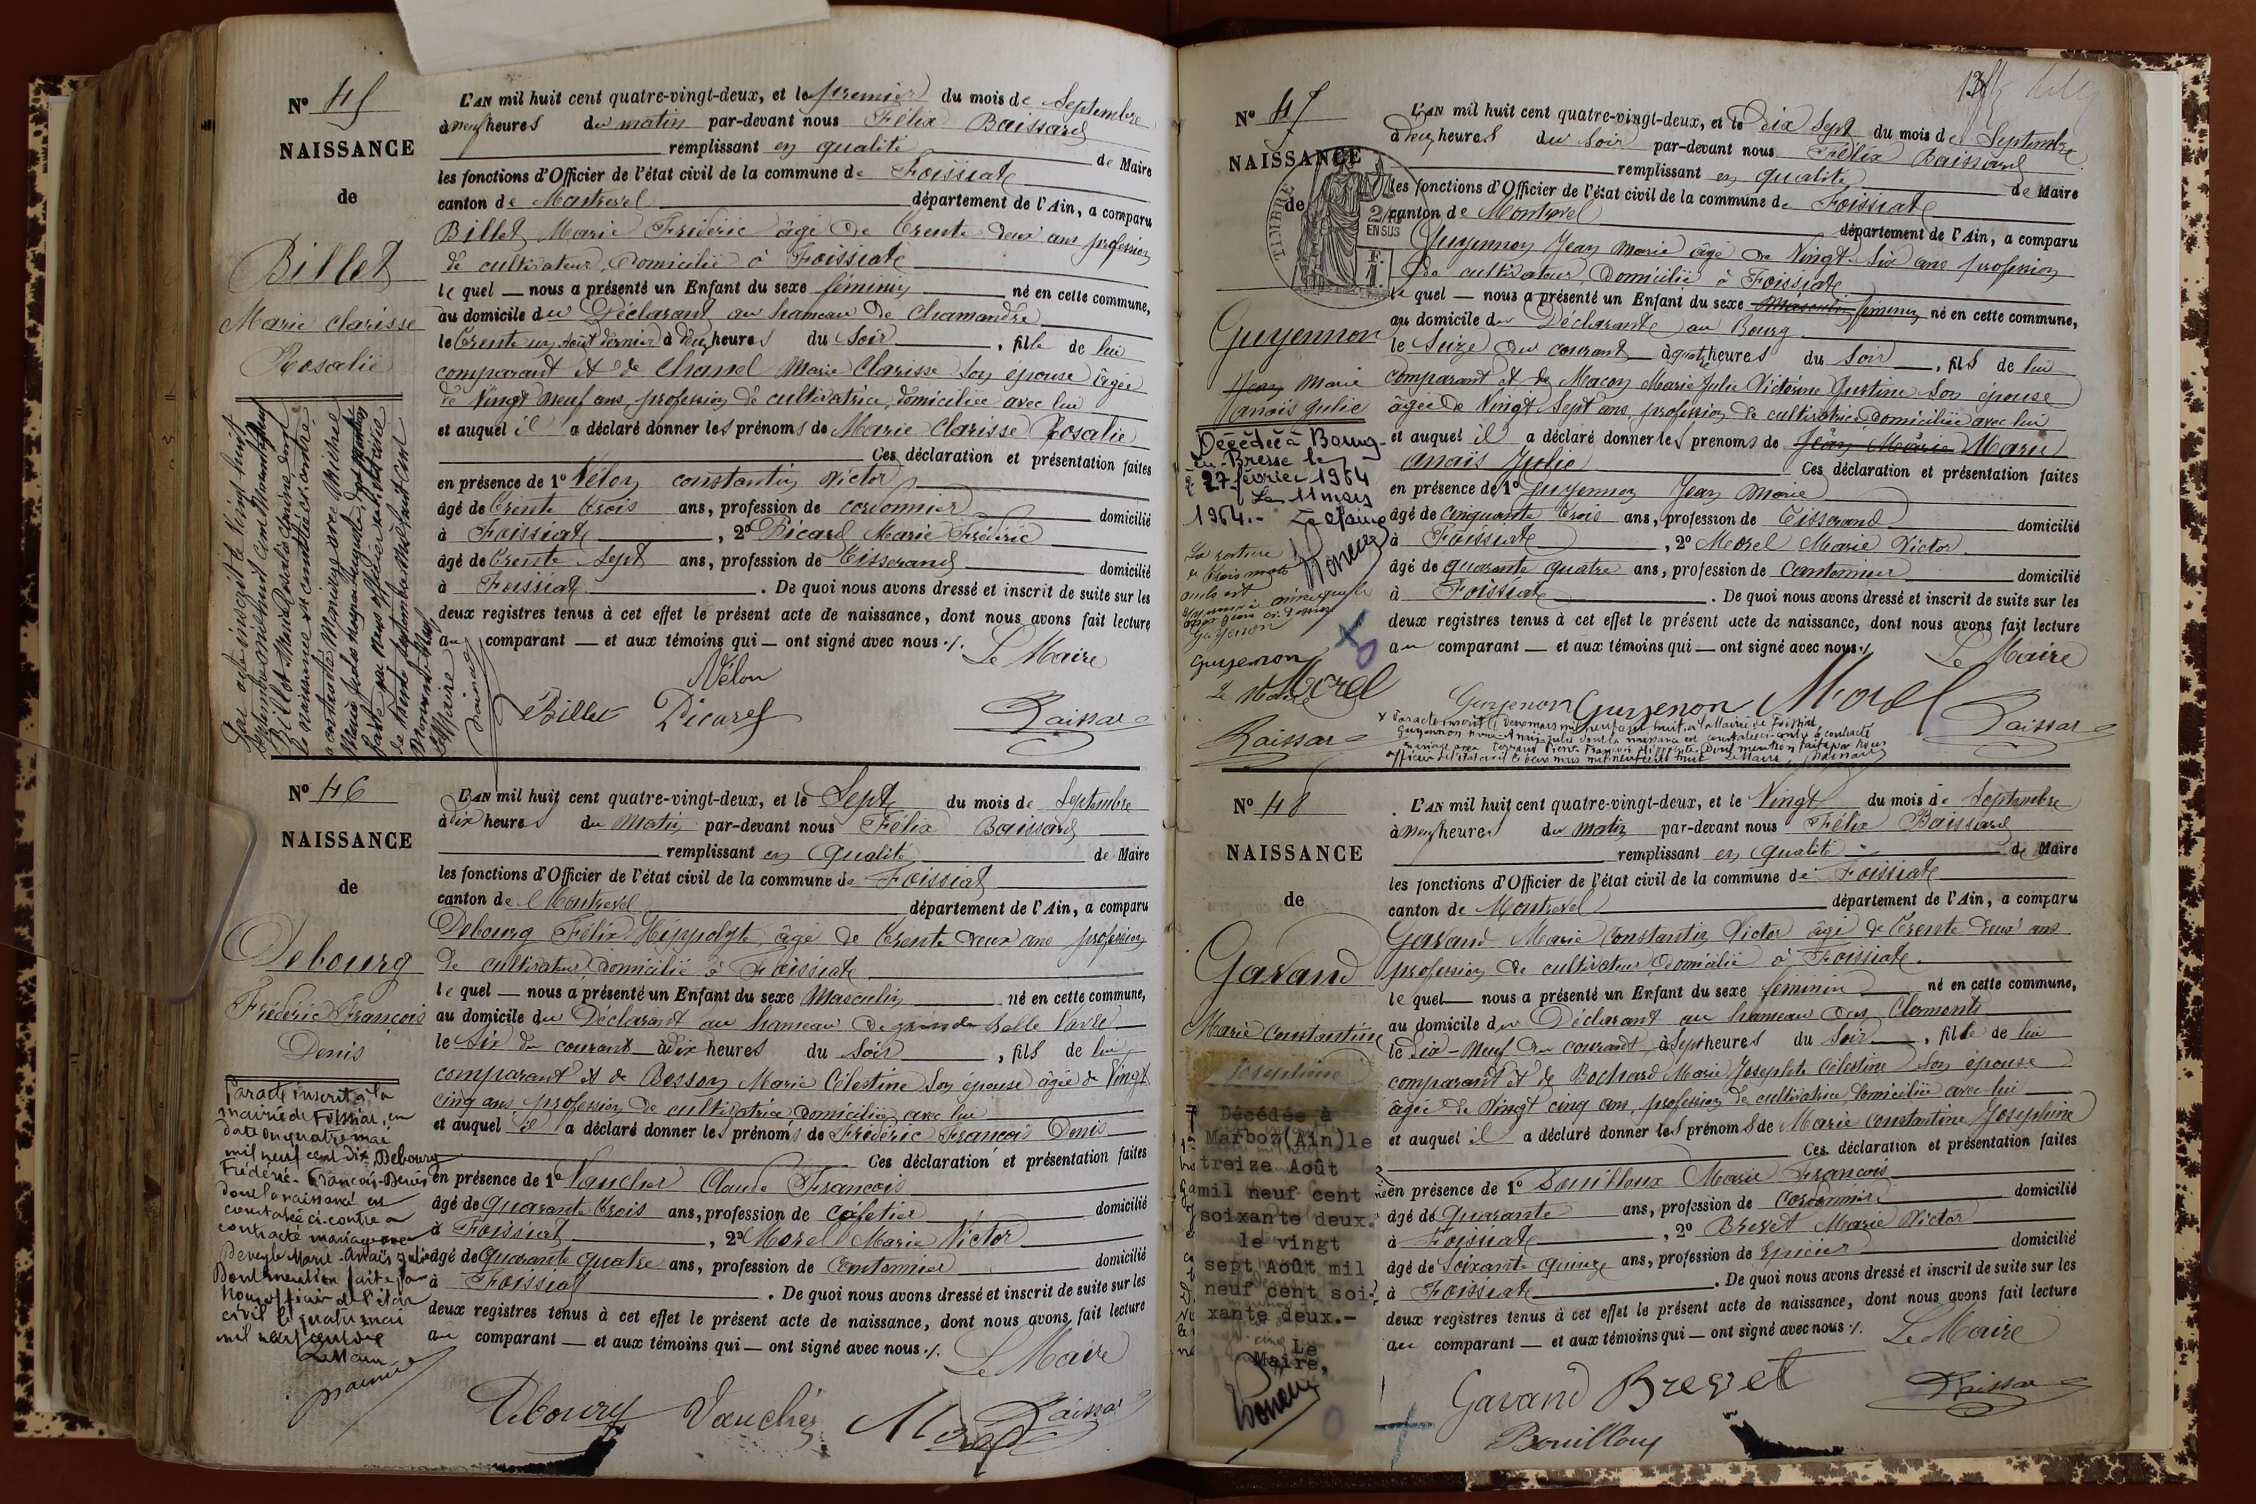 N° 45
NAISSANCE
de
Billet
Marie Clarisse
Rosalie
L'AN mil huit cent quatre-vingt-deux, et le premier du mois de Septembre
à neuf heures du matin par-devant nous Félix Baissard
remplissant en qualité de Maire
les fonctions d'Officier de l'état civil de la commune de Foissiat
canton de Montrevel département de l'Ain, a comparu
Billet Marie Frédéric âgé de trente deux ans profession
de cultivateur, domicilié à Foissiat
le quel — nous a présenté un Enfant du sexe féminin né en cette commune,
au domicile du Déclarant au hameau de Chamandre
le trente un août dernier à deux heures du soir, fille de lui
comparant et de Chanel Marie Clarisse son épouse âgée
de vingt neuf ans, profession de cultivatrice, domiciliée avec lui
et auquel il a déclaré donner les prénoms de Marie Clarisse Rosalie
Ces déclaration et présentation faites
en présence de 1° Vélon constantin victor
âgé de trente trois ans, profession de cordonnier domicilié
à Foissiat, 2° Picard Marie Frédéric
âgé de trente sept ans, profession de tisserand domicilié
à Foissiat. De quoi nous avons dressé et inscrit de suite sur les
deux registres tenus à cet effet le présent acte de naissance, dont nous avons fait lecture
au comparant — et aux témoins qui — ont signé avec nous ./.
Le Maire
Vélon
Billet Picard
Baissard
Par acte inscrit le vingt huit
septembre mil huit cent
Billet Marie Rosalie Clarisse dont
la naissance est constatée ci-contre,
a contracté Mariage avec Michel
Marie Jules
faite par nous officier de l'état civil
le trente septembre mil huit cent
Le Maire
N° 46
NAISSANCE
de
Debourg
Frédéric François
Denis
L'AN mil huit cent quatre-vingt-deux, et le Sept du mois de Septembre
à dix heures du Matin par-devant nous Félix Baissard
remplissant en qualité de Maire
les fonctions d'Officier de l'état civil de la commune de Foissiat
canton de Montrevel département de l'Ain, a comparu
Debourg Félix Hippolyte, âgé de trente deux ans profession
de cultivateur, domicilié à Foissiat
le quel — nous a présenté un Enfant du sexe Masculin né en cette commune,
au domicile du Déclarant au hameau de grande Belle Vavre
le six du courant à dix heures du soir, fils de lui
comparant et de Besson Marie Célestine son épouse âgée de vingt
cinq ans, profession de cultivatrice, domiciliée avec lui
et auquel il a déclaré donner les prénoms de Frédéric François Denis
Ces déclaration et présentation faites
en présence de 1° Vaucher Claude François
âgé de quarante trois ans, profession de cafetier domicilié
à Foissiat, 2° Morel Marie Victor
âgé de quarante quatre ans, profession de cantonnier domicilié
à Foissiat. De quoi nous avons dressé et inscrit de suite sur les
deux registres tenus à cet effet le présent acte de naissance, dont nous avons fait lecture
au comparant — et aux témoins qui — ont signé avec nous ./.
Le Maire
Debourg Vaucher Morel Baissard
Par acte inscrit à la
mairie de Foissiat, en
date du quatre mai
mil neuf cent dix, Debourg
Frédéric-François-Denis
dont la naissance est
constatée ci-contre a
contracté mariage avec
Marie-Anaïs Julie
Dont mention faite par
nous officier de l'état
civil le quatre mai
mil neuf cent dix
Le Maire
N° 47
NAISSANCE
de
TIMBRE
2/10
EN SUS
Guyennon
Jean Marie
anaïs Julie
Décédée à Bourg-
en-Bresse le
27 février 1964
Le 11 mars
1964.- Le Maire
La rature
de trois mots
nuls est
approuvée
Guyenon
Guyenon
Morel
Le Maire
Baissard
L'AN mil huit cent quatre-vingt-deux, et le dix Sept du mois de Septembre
à deux heures du soir par-devant nous Félix Baissard
remplissant en qualité de Maire
les fonctions d'Officier de l'état civil de la commune de Foissiat
canton de Montrevel département de l'Ain, a comparu
Guyennon Jean Marie âgé de vingt-six ans profession
de cultivateur, domicilié à Foissiat
le quel — nous a présenté un Enfant du sexe Masculin féminin né en cette commune,
au domicile du Déclarante au Bourg
le Seize du courant à quatre heures du soir, fils de lui
comparant et de Macon Marie Julie Victorine Justine son épouse
âgée de vingt sept ans, profession de cultivatrice, domiciliée avec lui
et auquel il a déclaré donner les prénoms de Jean Marie Marie
anaïs Julie Ces déclaration et présentation faites
en présence de 1° Guyennon Jean Marie
âgé de cinquante trois ans, profession de tisserand domicilié
à Foissiat, 2° Morel Marie Victor
âgé de quarante quatre ans, profession de cantonnier domicilié
à Foissiat. De quoi nous avons dressé et inscrit de suite sur les
deux registres tenus à cet effet le présent acte de naissance, dont nous avons fait lecture
au comparant — et aux témoins qui — ont signé avec nous ./.
Le Maire
Guyenon Guyenon Morel
Baissard
Par acte inscrit le deux mars mil neuf cent huit, à la Mairie de Foissiat,
Guyennon Marie-Anaïs-Julie dont la naissance est constatée ci-contre a contracté
mariage avec François Hippolyte. Dont mention faite par nous
officier de l'état civil le deux mars mil neuf cent huit. Le Maire,
N° 48
NAISSANCE
de
Gavand
Marie Constantine
Joséphine
Décédée à
Marboz(Ain)le
treize Août
mil neuf cent
soixante deux.
le vingt
sept Août mil
neuf cent soi-
xante deux.-
Le
Maire,
L'AN mil huit cent quatre-vingt-deux, et le Vingt du mois de Septembre
à neuf heures du matin par-devant nous Félix Baissard
remplissant en qualité de Maire
les fonctions d'Officier de l'état civil de la commune de Foissiat
canton de Montrevel département de l'Ain, a comparu
Gavand Marie Constantin Victor âgé de trente deux ans
profession de cultivateur, domicilié à Foissiat.
le quel — nous a présenté un Enfant du sexe féminin né en cette commune,
au domicile du Déclarant au hameau des Clements
le dix-neuf du courant, à sept heures du soir, fille de lui
comparant et de Bochard Marie Josephte Célestine son épouse
âgée de vingt cinq ans, profession de cultivatrice, domiciliée avec lui
et auquel il a déclaré donner les prénoms de Marie constantine Joséphine
Ces déclaration et présentation faites
en présence de 1° Bouilloux Marie François
âgé de quarante ans, profession de cordonnier domicilié
à Foissiat, 2° Brevet Marie Victor
âgé de soixante quinze ans, profession de Epicier domicilié
à Foissiat. De quoi nous avons dressé et inscrit de suite sur les
deux registres tenus à cet effet le présent acte de naissance, dont nous avons fait lecture
au comparant — et aux témoins qui — ont signé avec nous ./.
Le Maire
Gavand Brevet
Baissard
Bouilloux